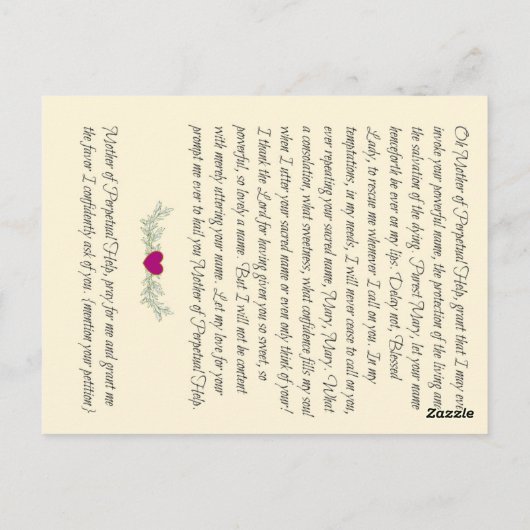 Oh Mother of Perpetual Help, grant that I may
invoke your powerful name, the protection of the living and
the salvation of the dying. Purest Mary, let your name
henceforth be ever on my lips. Delay not, Blessed
Lady, to rescue me whenever I call on you. In my
temptations, in my needs, I will never cease to call on you,
ever repeating your sacred name, Mary, Mary. What
a consolation, what sweetness, what confidence fills my soul
when I utter your sacred name or even only think of your!
I thank the Lord for having given you so sweet, so
powerful, so lovely a name. But I will not be content
with merely uttering your name. Let my love for your
prompt me ever to hail you Mother of Perpetual Help.
Mother of Perpetual Help, pray for me and grant me
the favor I confidently ask of you. {mention your petition}
Zazzle